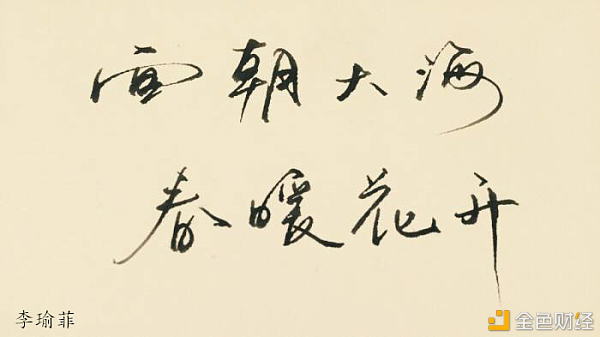 面朝大海
春暖花开
李瑜菲
金色财经